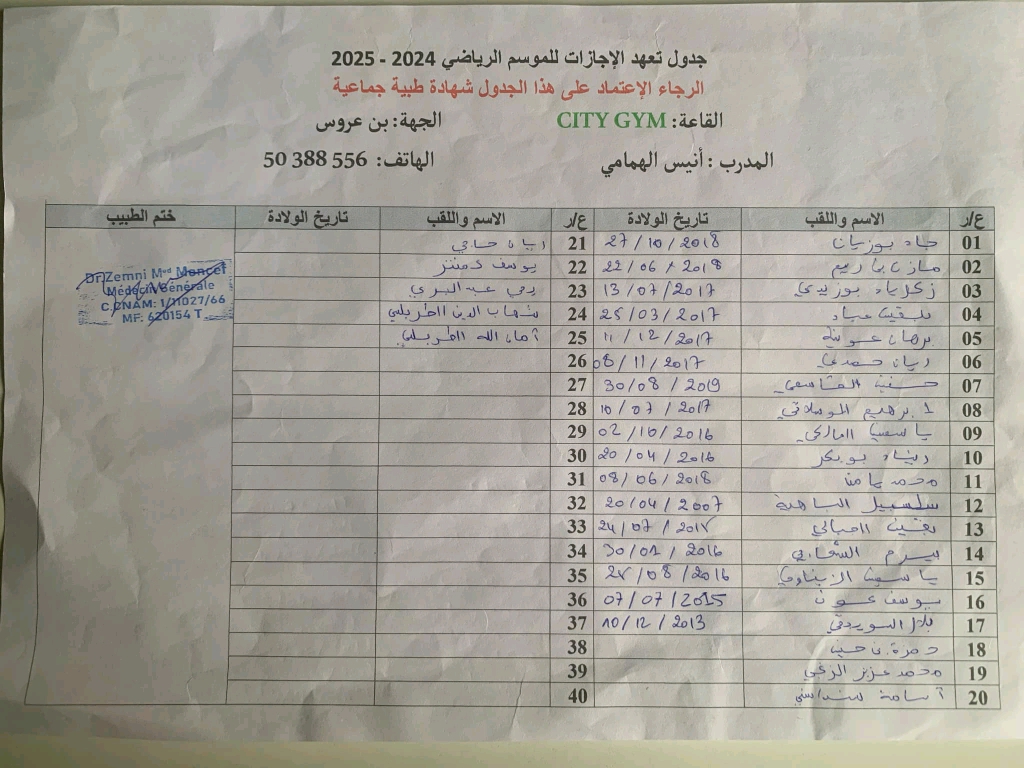 جدول تعهد الإجازات للموسم الرياضي 2024 - 2025
الرجاء الإعتماد على هذا الجدول شهادة طبية جماعية
القاعة: CITY GYM الجهة: بن عروس
المدرب : أنيس الهمامي الهاتف: 50 388 556
ع/ر الاسم واللقب تاريخ الولادة ع/ر الاسم واللقب تاريخ الولادة ختم الطبيب
01 جاد بوزيان 27/10/2018 21
02 مازن بماريم 22/06/2018 22 يوسف
03 زكرياء بوزيدي 13/07/2017 23 عبد البري
04 بلقيت عياد 25/03/2017 24 شهاب الدين الطربلسي
05 برهان عونلية 11/12/2017 25 أمان الله الطربلسي
06 ريان حمدي 08/11/2017 26
07 القاسمي 30/08/2019 27
08 ابرهيم الموسلاتي 10/07/2017 28
09 ياسمين المالكي 02/10/2016 29
10 بوبكر 20/04/2016 30
11 محمد يامن 08/06/2018 31
12 سلسبيل الساهلة 20/04/2007 32
13 24/07/ 33
14 بيرم 30/01/2016 34
15 ياسمين الزيناوي /08/2016 35
16 يوسف عون 07/07/2015 36
17 بلال السويدي 10/12/2013 37
18 حمزة 38
19 محمد عزيز الزغبي 39
20 أسامة سنداسني 40
Dr Zemni Med Moncef
Médecin Générale
C.CNAM: 1/11027/66
MF: 620154 T